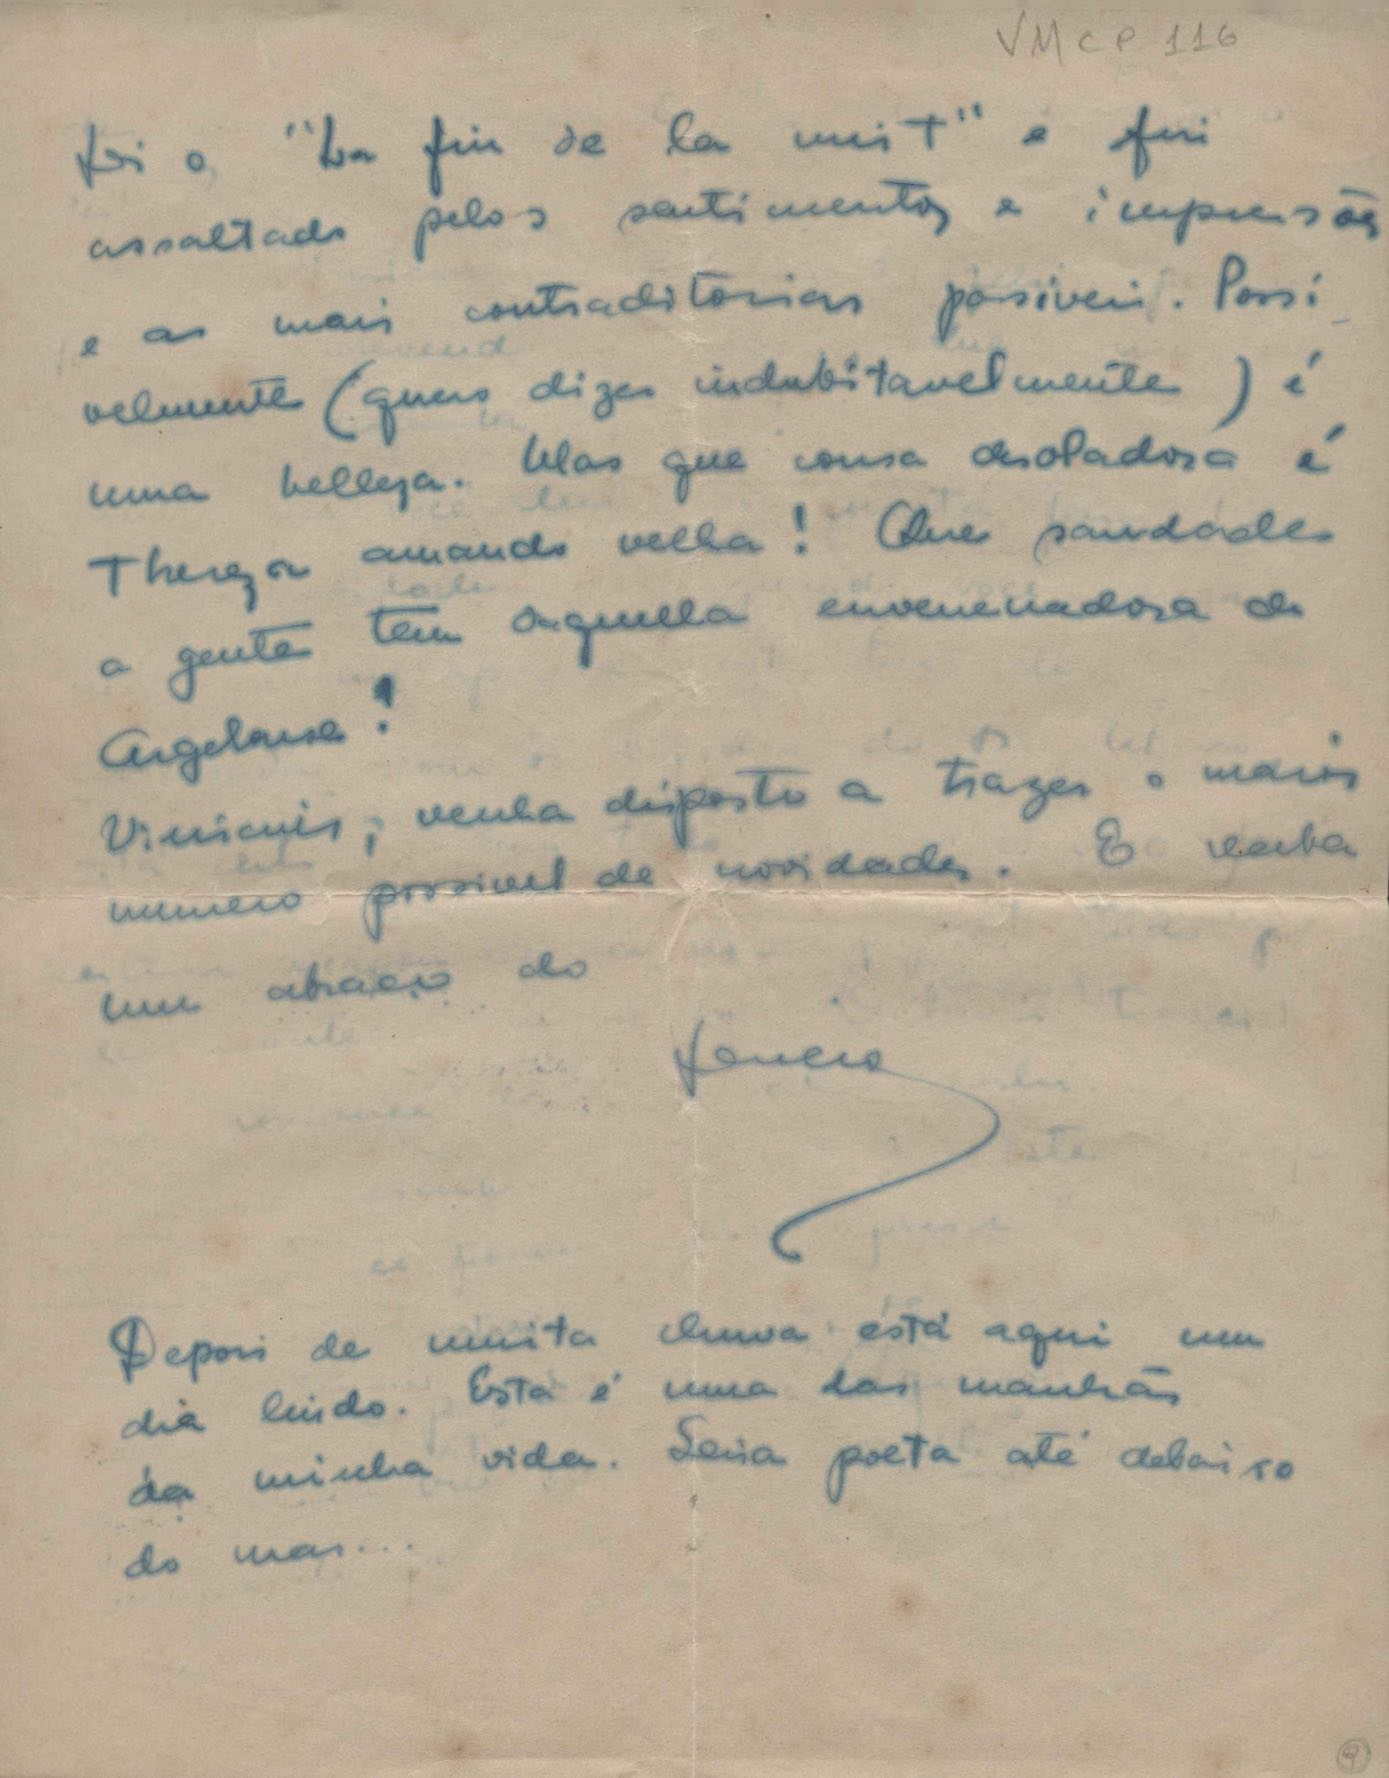 VMCP 116
Li o, "La fin de la nuit" e fui
assaltado pelos sentimentos e impressões
e as mais contraditorias possiveis. Possi-
velmente (quero dizer indubitavelmente) é
uma belleza. Mas que cousa desoladora é
Thereza amando velha! Que saudades
a gente tem daquella envenenadora de
Argelouse!
Vinicius, venha disposto a trazer o maior
numero possivel de novidades. E receba
um abraço do
Depois de muita chuva está aqui um
dia lindo. Esta é uma das manhãs
da minha vida. Seria poeta até debaixo
do mar...
9